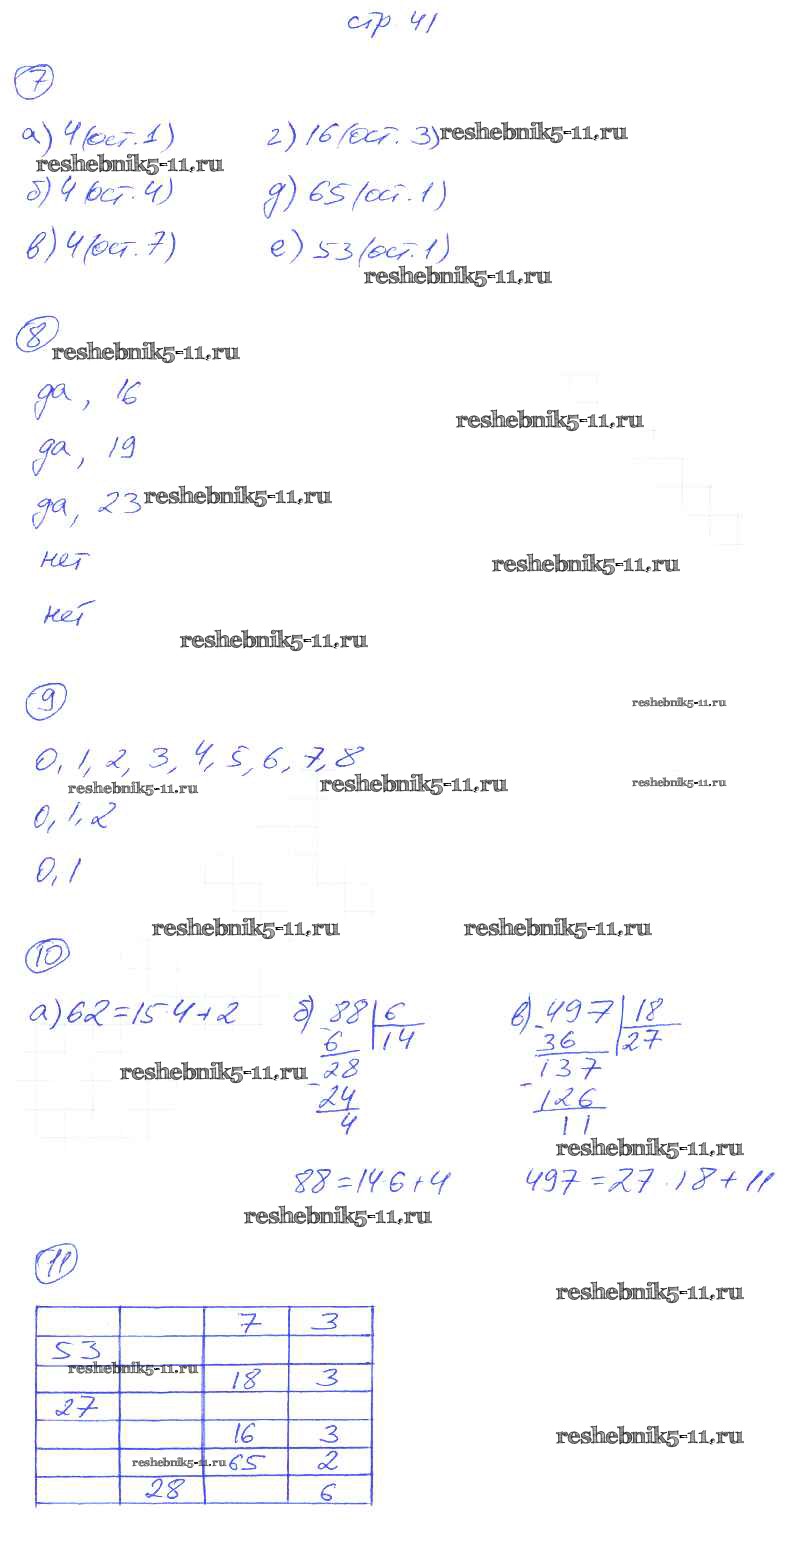 стр 41
7
а) 4 (ост. 1) г) 16 (ост. 3) reshebnik5-11.ru
reshebnik5-11.ru
б) 4 (ост. 4) д) 65 (ост. 1)
в) 4 (ост. 7) е) 53 (ост. 1)
reshebnik5-11.ru
8
reshebnik5-11.ru
да, 16
reshebnik5-11.ru
да, 19
да, 23 reshebnik5-11.ru
нет reshebnik5-11.ru
нет
reshebnik5-11.ru
9 reshebnik5-11.ru
0, 1, 2, 3, 4, 5, 6, 7, 8
reshebnik5-11.ru reshebnik5-11.ru reshebnik5-11.ru
0, 1, 2
0, 1
reshebnik5-11.ru reshebnik5-11.ru
10
а) 62 = 15·4 + 2 б) 88 | 6 в) 497 | 18
- 6 14 - 36 27
reshebnik5-11.ru - 28 - 137
24 126
4 11
reshebnik5-11.ru
88 = 14·6 + 4 497 = 27 · 18 + 11
reshebnik5-11.ru
11
reshebnik5-11.ru
7 3
53
reshebnik5-11.ru
18 3
27
16 3 reshebnik5-11.ru
reshebnik5-11.ru 65 2
28 6